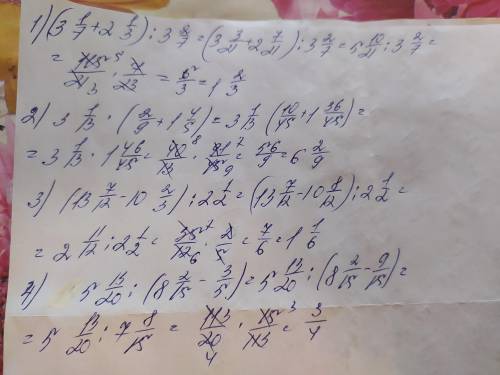 1) (3 1/7 + 2 1/3) : 3 2/7 = (3 3/21 + 2 7/21) : 3 2/7 = 5 10/21 : 3 2/7 =
= 115/21 · 7/23 = 5/3 = 1 2/3
2) 3 1/13 · (2/9 + 1 4/5) = 3 1/13 (10/45 + 1 36/45) =
= 3 1/13 · 1 46/45 = 40/13 · 91/45 = 56/9 = 6 2/9
3) (13 7/12 - 10 2/3) : 2 1/2 = (13 7/12 - 10 8/12) : 2 1/2 =
= 2 11/12 : 2 1/2 = 35/12 · 2/5 = 7/6 = 1 1/6
4) 5 13/20 : (8 2/15 - 3/5) = 5 13/20 : (8 2/15 - 9/15) =
= 5 13/20 : 7 8/15 = 113/20 · 15/113 = 3/4